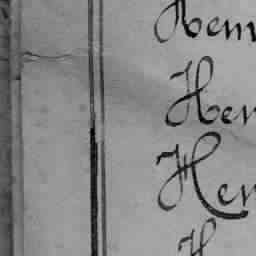 Hem
Her
Her
H